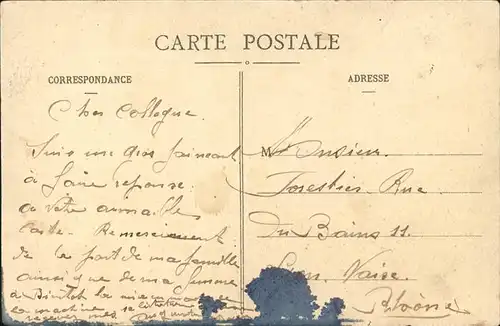 CARTE POSTALE
CORRESPONDANCE
ADRESSE
Cher Collegue.
Suis un gros faineant
à faire reponse
a votre aimable
carte. Remerciement
de la part de ma famille
ainsi que de ma femme
à Bientot
Monsieur
Forestier Rue
Du Bains 11.
Lyon. Vaise.
Rhône